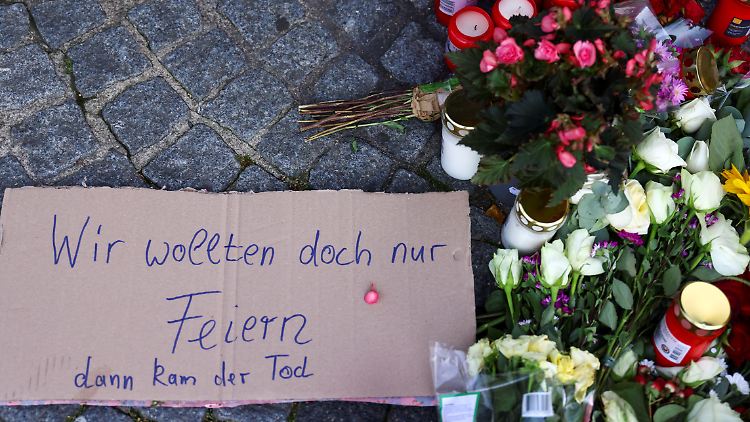 Wir wollten doch nur
Feiern
dann kam der Tod